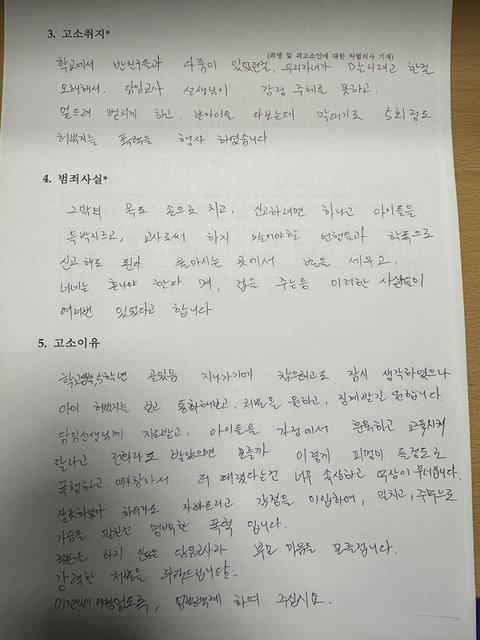 3. 고소취지*
(죄명 및 피고소인에 대한 처벌의사 기재)
학교에서 반친구들과 다툼이 있었던걸, 우리자녀가 때리려고 한걸
오해해서. 담임교사 선생님이 감정 주체를 못하고,
엎드려 뻗치게 하고. 반아이들 다보는데 막대기로 5회정도
허벅지를 폭력을 행사 하였습니다.
4. 범죄사실*
그밖의 목도 손으로 치고, 신고하려면 하라고 아이들을
윽박지르고, 교사로써 하지 말아야할 언행들과 학폭으로
신고해도 된다 보는 곳에서 벌을 세우고,
너네는 혼나야 한다 며, 겁을 주는등 이러한 사실들이
여러번 있었다고 합니다
5. 고소이유
5학년 끝있음 지나가기에 참으려고도 잠시 생각하였으나
아이 허벅지를 보고 통화해보고, 처벌을 원하고, 징계받길 원합니다.
담임선생님께 지도받고, 아이들을 가정에서 훈육하고 교육시켜
달라고 전화라도 받았으면 모를까 이렇게 피멍이 들정도로
폭행하고, 더 때렸다는건 너무 속상하고 억장이 무너집니다.
잘못하였다 하더라도 자빠트리고 감정을 이입하여, 밀치고, 주먹으로
가슴을 명백한 폭력 입니다.
결혼을 하지 않은 담임교사라 부모 마음을 모를겁니다.
강력한 처벌을 부탁드립니다.
이런일이 없도록, 하여 주십시오.